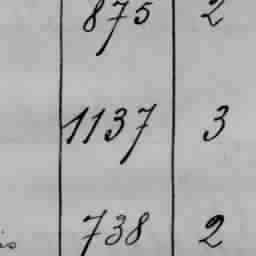 875 2
1137 3
738 2